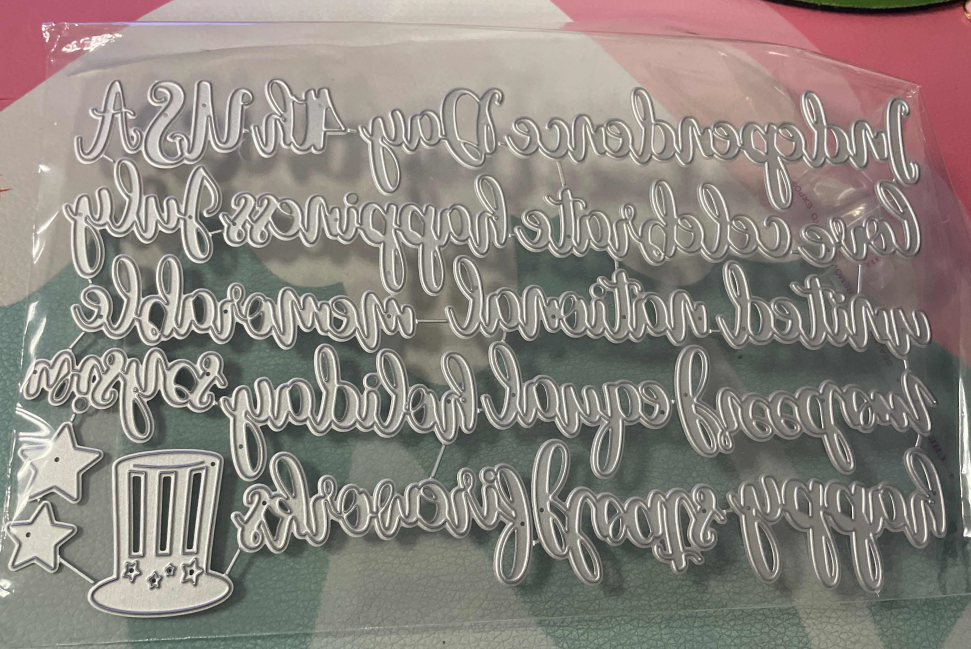 Independence Day 4th USA
love celebrate happiness July
united national memorable
freedom equal holiday
happy fireworks